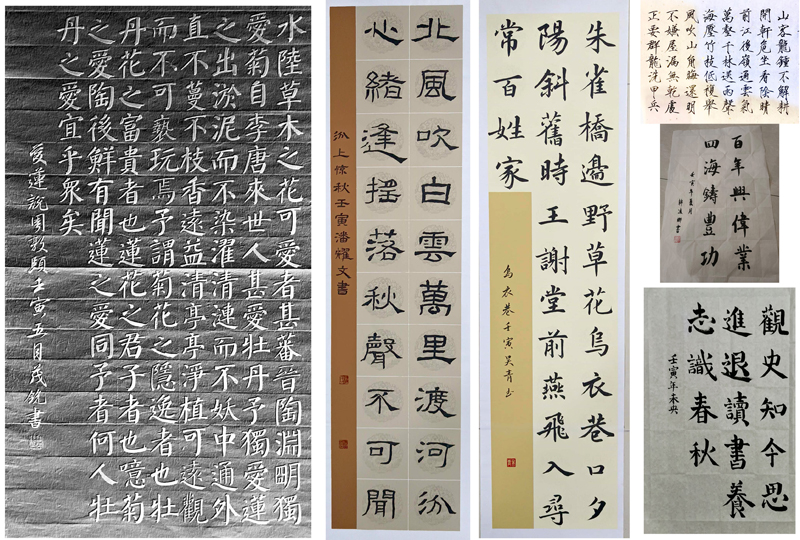 水陸草木之花可愛者甚蕃晉陶淵明獨
愛菊自李唐來世人甚愛牡丹予獨愛蓮
之出淤泥而不染濯清漣而不妖中通外
直不蔓不枝香遠益清亭亭淨植可遠觀
而不可褻玩焉予謂菊花之隱逸者也牡
丹花之富貴者也蓮花之君子者也噫菊
之愛陶後鮮有聞蓮之愛同予者何人牡
丹之愛宜乎眾矣
愛蓮說周敦頤壬寅五月茂銳書
北風吹白雲萬里渡河汾
心緒逢搖落秋聲不可聞
汾上惊秋壬寅潘耀文書
朱雀橋邊野草花烏衣巷口夕
陽斜舊時王謝堂前燕飛入尋
常百姓家
烏衣巷壬寅吳青书
山客龍鍾不解耕
開軒危坐看陰晴
前江後嶺通雲氣
萬壑千林送雨聲
海壓竹枝低復舉
風吹山角晦還明
不嫌屋漏無乾處
正要群龍洗甲兵
百年興偉業
四海鑄豐功
壬寅年夏月
觀史知今思
進退讀書養
志識春秋
壬寅年未央